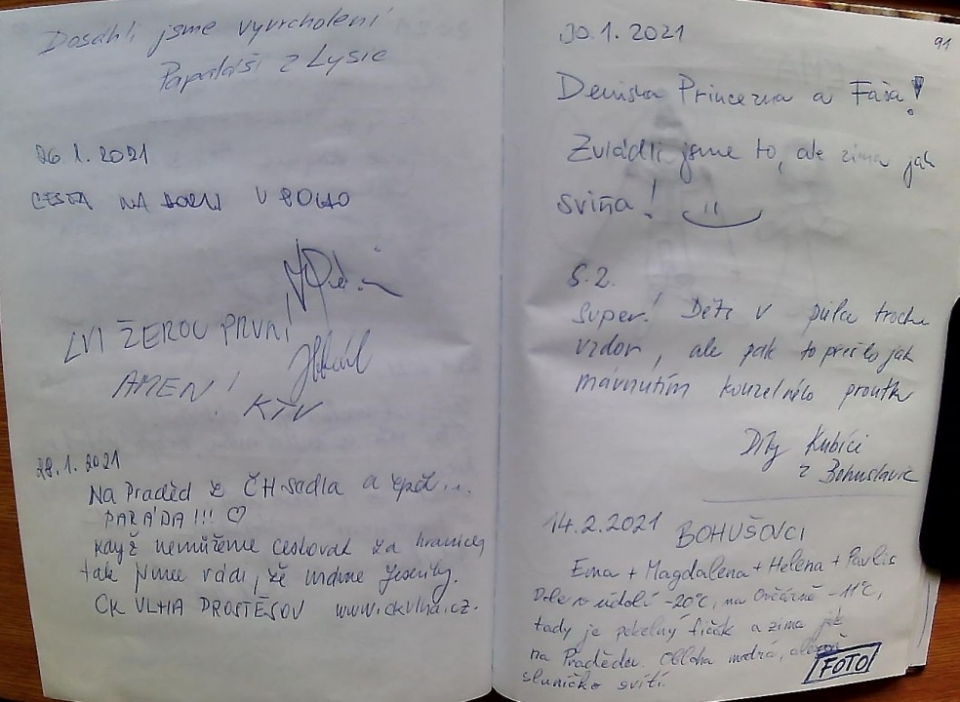 Dosáhli jsme vyvrcholení
Papaláši z Lysic
26.1.2021
CESTA NA
LVI ŽEROU PRVNÍ
AMEN!
KTV
28.1.2021
Na Praděd z ČH. Sadla a zpět...
PARÁDA!!! ♡
Když nemůžeme cestovat za hranice,
tak jsme rádi, že máme Jeseníky.
CK VLHA PROSTĚJOV www.ckvlha.cz.
91
30.1.2021
Deniska Princezna a Fáťa!
Zvládli jsme to, ale zima jak
sviňa!
5.2.
Super! Děti v půlce trochu
vzdor, ale pak to přešlo jak
mávnutím kouzelného proutku
Kubíci
z Bohuslavic
14.2.2021 BOHUŠOVCI
Ema + Magdalena + Helena + Pavlis
Dole v údolí -20°C, na Ovčárně -11°C,
tady je pekelný fičák a zima jak
na Pradědu. Obloha modrá,
sluníčko svítí.
FOTO